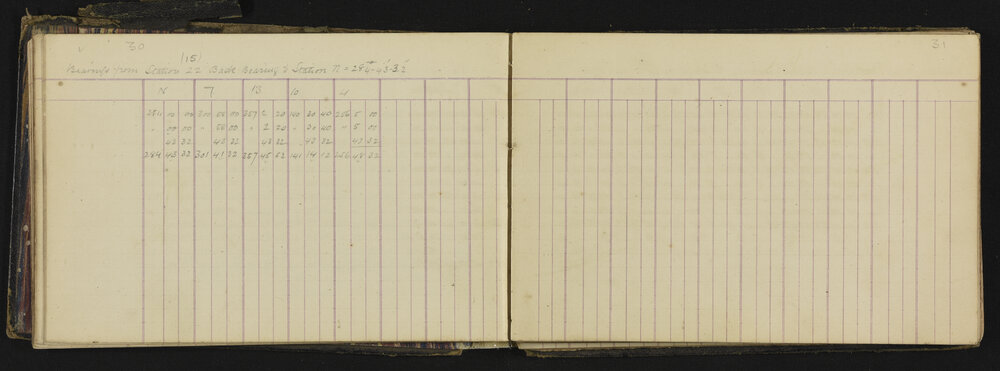 30
31
(15)
Bearings from Station 22 Back Bearing to Station N = 284°-43'-32"
N 7 13 10 4
284 00 00 300 58 00 357 2 20 140 30 40 256 5 00
" 00 00 " 58 00 " 2 20 " 30 40 " 5 00
43 32 43 32 43 32 43 32 43 32
284 43 32 301 41 32 357 45 52 141 14 12 256 48 32